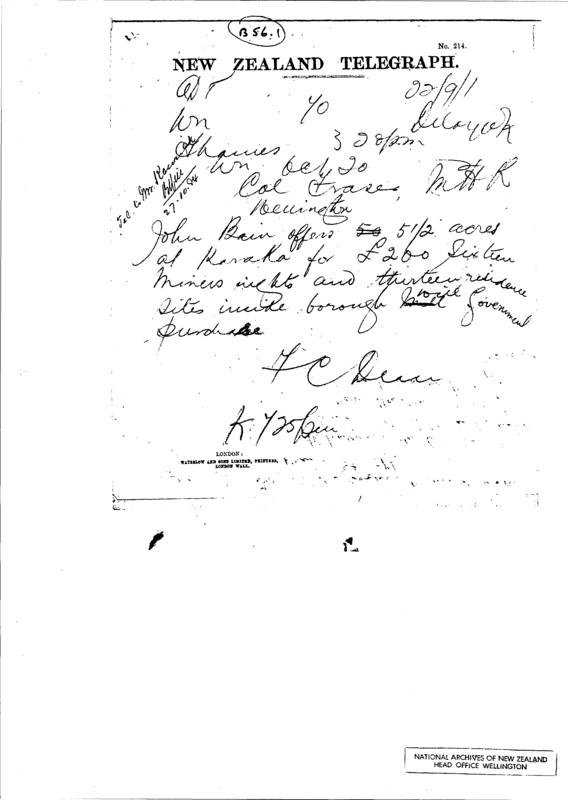 B 56.1
No. 214.
NEW ZEALAND TELEGRAPH.
22/9/1
Wn
Thames
3 28pm
Wn Oct 20
Col Fraser, M H R
Wellington
27.10.94
John Bain offers 50 51/2 acres
at Karaka for £200 Sixteen
Miners rights and thirteen residence
sites inside borough will Government
purchase
F C Dean
LONDON:
WATERLOW AND SONS LIMITED, PRINTERS,
LONDON WALL.
NATIONAL ARCHIVES OF NEW ZEALAND
HEAD OFFICE WELLINGTON